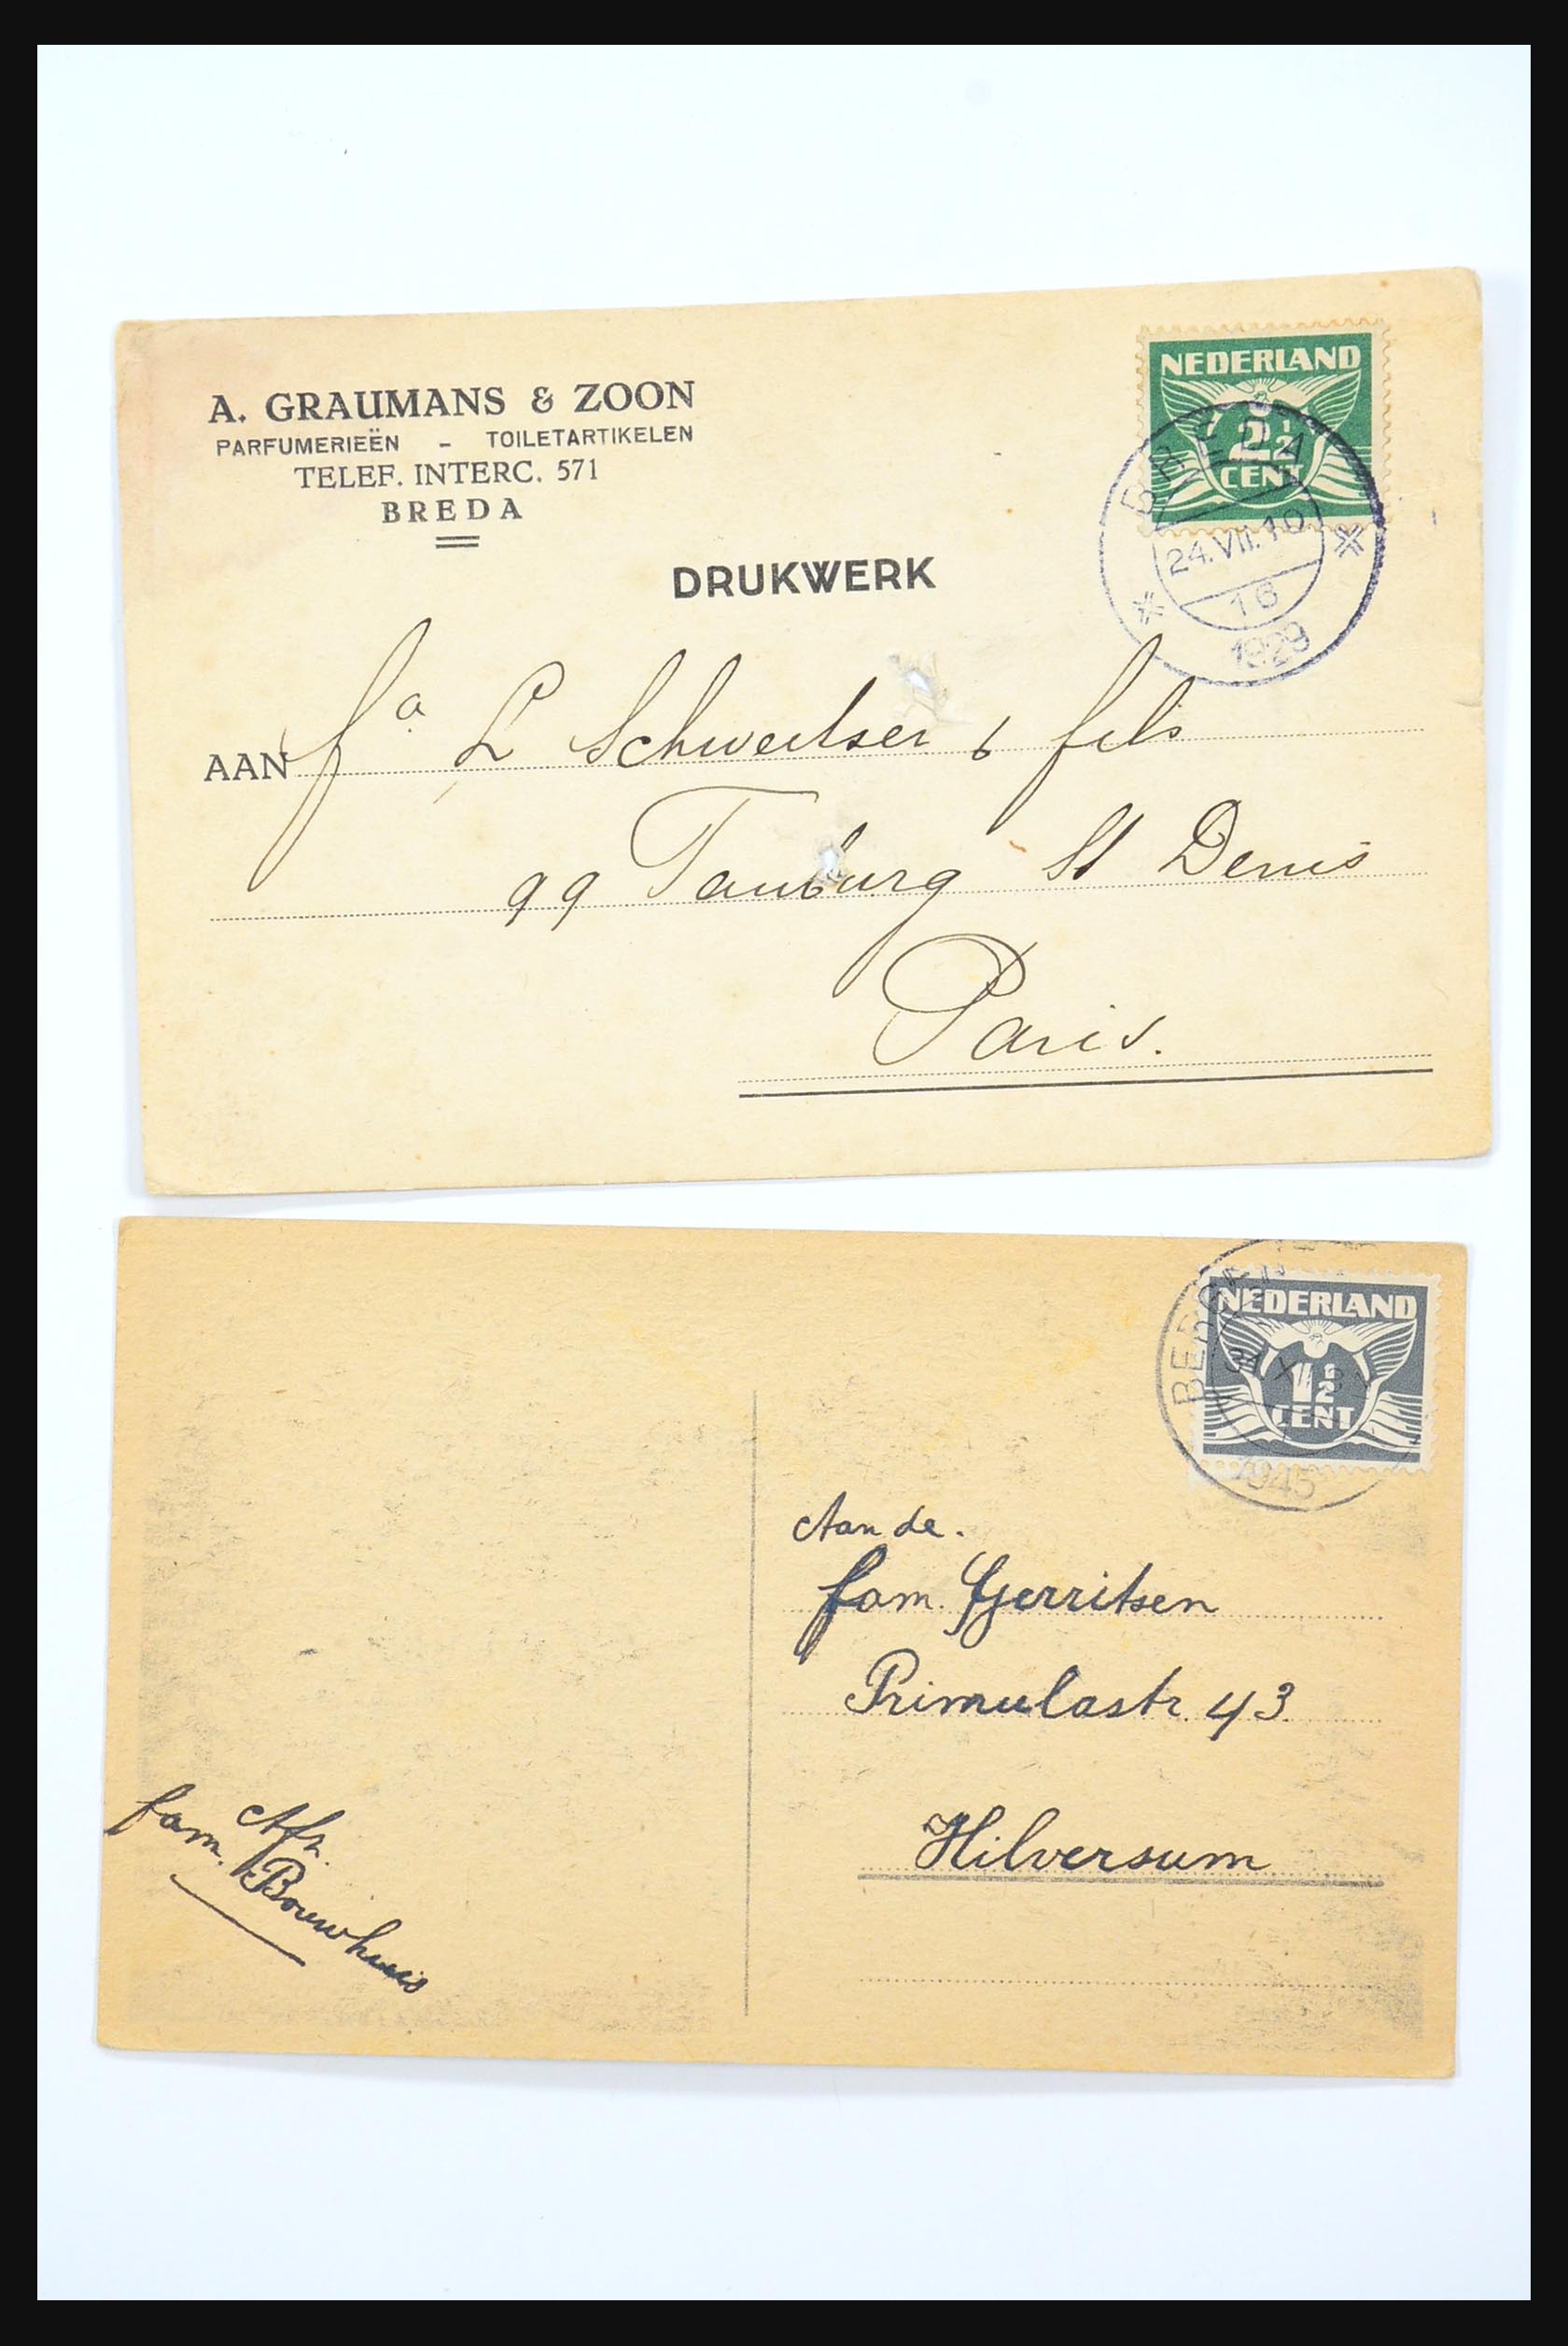 A. GRAUMANS & ZOON
PARFUMERIEËN - TOILETARTIKELEN
TELEF. INTERC. 571
BREDA
NEDERLAND
2½
CENT
BREDA
24.VII.10
16
1929
DRUKWERK
AAN fa L Schweitser & fils
99 Fauburg St Denis
Paris.
NEDERLAND
1½
CENT
1945
Aan de.
fam. Gerritsen
Primulastr. 43
Hilversum
Afz.
fam. Bouwhuis